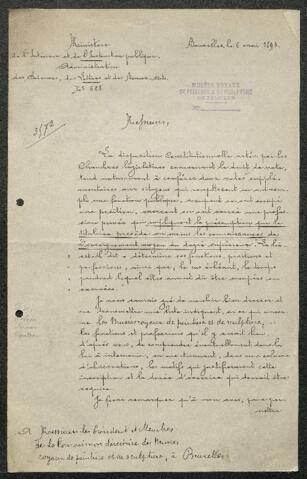 Ministère
de l'Intérieur et de l'Instruction publique.
Administration
des Sciences, des Lettres et des Beaux-Arts.
Nº 688
Bruxelles, le 6 mai 1893.
MUSÉES ROYAUX
DE PEINTURE & DE SCULPTURE
DE BELGIQUE
Messieurs,
La disposition Constitutionnelle votée par les
Chambres législatives concernant le droit de vote,
tend notamment à conférer deux votes supplé-
mentaires aux citoyens qui remplissent ou ont rem-
pli une fonction publique, occupent ou ont occupé
une position, exercent ou ont exercé une profes-
sion privée qui implique la présomption que le
titulaire possède au moins les connaissances de
l'enseignement moyen du degré supérieur. La loi
est-il dit « détermine ces fonctions, positions et
professions, ainsi que, le cas échéant, le temps
pendant lequel elles auront dû être occupées ou
exercées. »
Je vous saurais gré de vouloir bien dresser et
me transmettre une liste indiquant, en ce qui concer-
ne les Musées royaux de peinture et de sculpture,
les fonctions et positions qu'il y aurait lieu
d'après vous, de comprendre éventuellement dans la
loi à intervenir, en mentionnant, dans une colonne
d'observations, les motifs qui justifieraient cette
inscription et la durée d'exercice qui devrait être
requise.
Je ferai remarquer qu'à mon avis, pour per-
mettre
A Messieurs les Président et Membres
de la Commission directrice des Musées
royaux de peinture et de sculpture, à Bruxelles